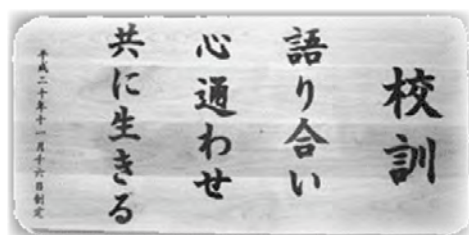 校訓
語り合い
心通わせ
共に生きる
平成二十年十一月十六日制定